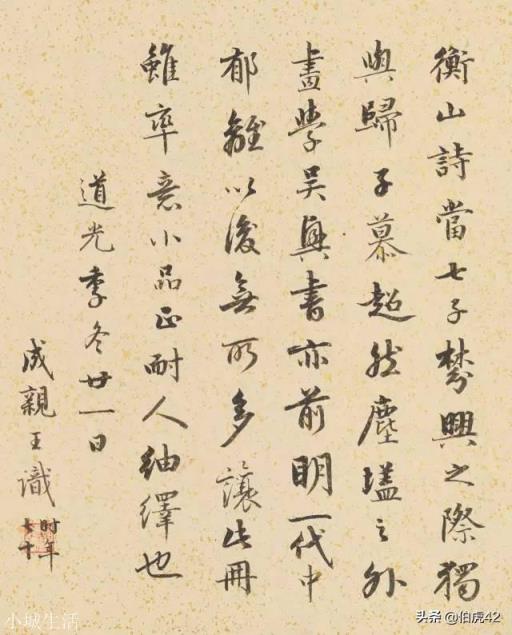 衡山詩當七子棼興之際獨
與歸子慕超然塵壒之外
畫學吳興書亦前明一代中
郁離以後無所多讓此冊
雖率意小品正耐人紬繹也
道光季冬廿一日
成親王識
时年
七十
小城生活
头条 @伯虎42